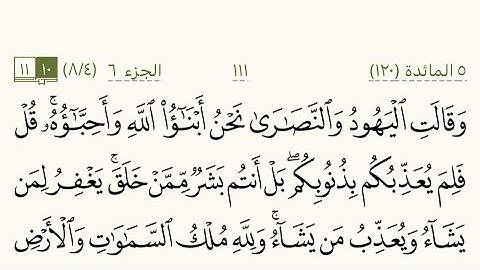 ٥ المائدة (١٢٠) ١١١ الجزء ٦ (٨/٤) ١٠ ١١
وَقَالَتِ ٱلْيَهُودُ وَٱلنَّصَٰرَىٰ نَحْنُ أَبْنَٰٓؤُا۟ ٱللَّهِ وَأَحِبَّٰٓؤُهُۥ ۚ قُلْ
فَلِمَ يُعَذِّبُكُم بِذُنُوبِكُم ۖ بَلْ أَنتُم بَشَرٌ مِّمَّنْ خَلَقَ ۚ يَغْفِرُ لِمَن
يَشَآءُ وَيُعَذِّبُ مَن يَشَآءُ ۚ وَلِلَّهِ مُلْكُ ٱلسَّمَٰوَٰتِ وَٱلْأَرْضِ